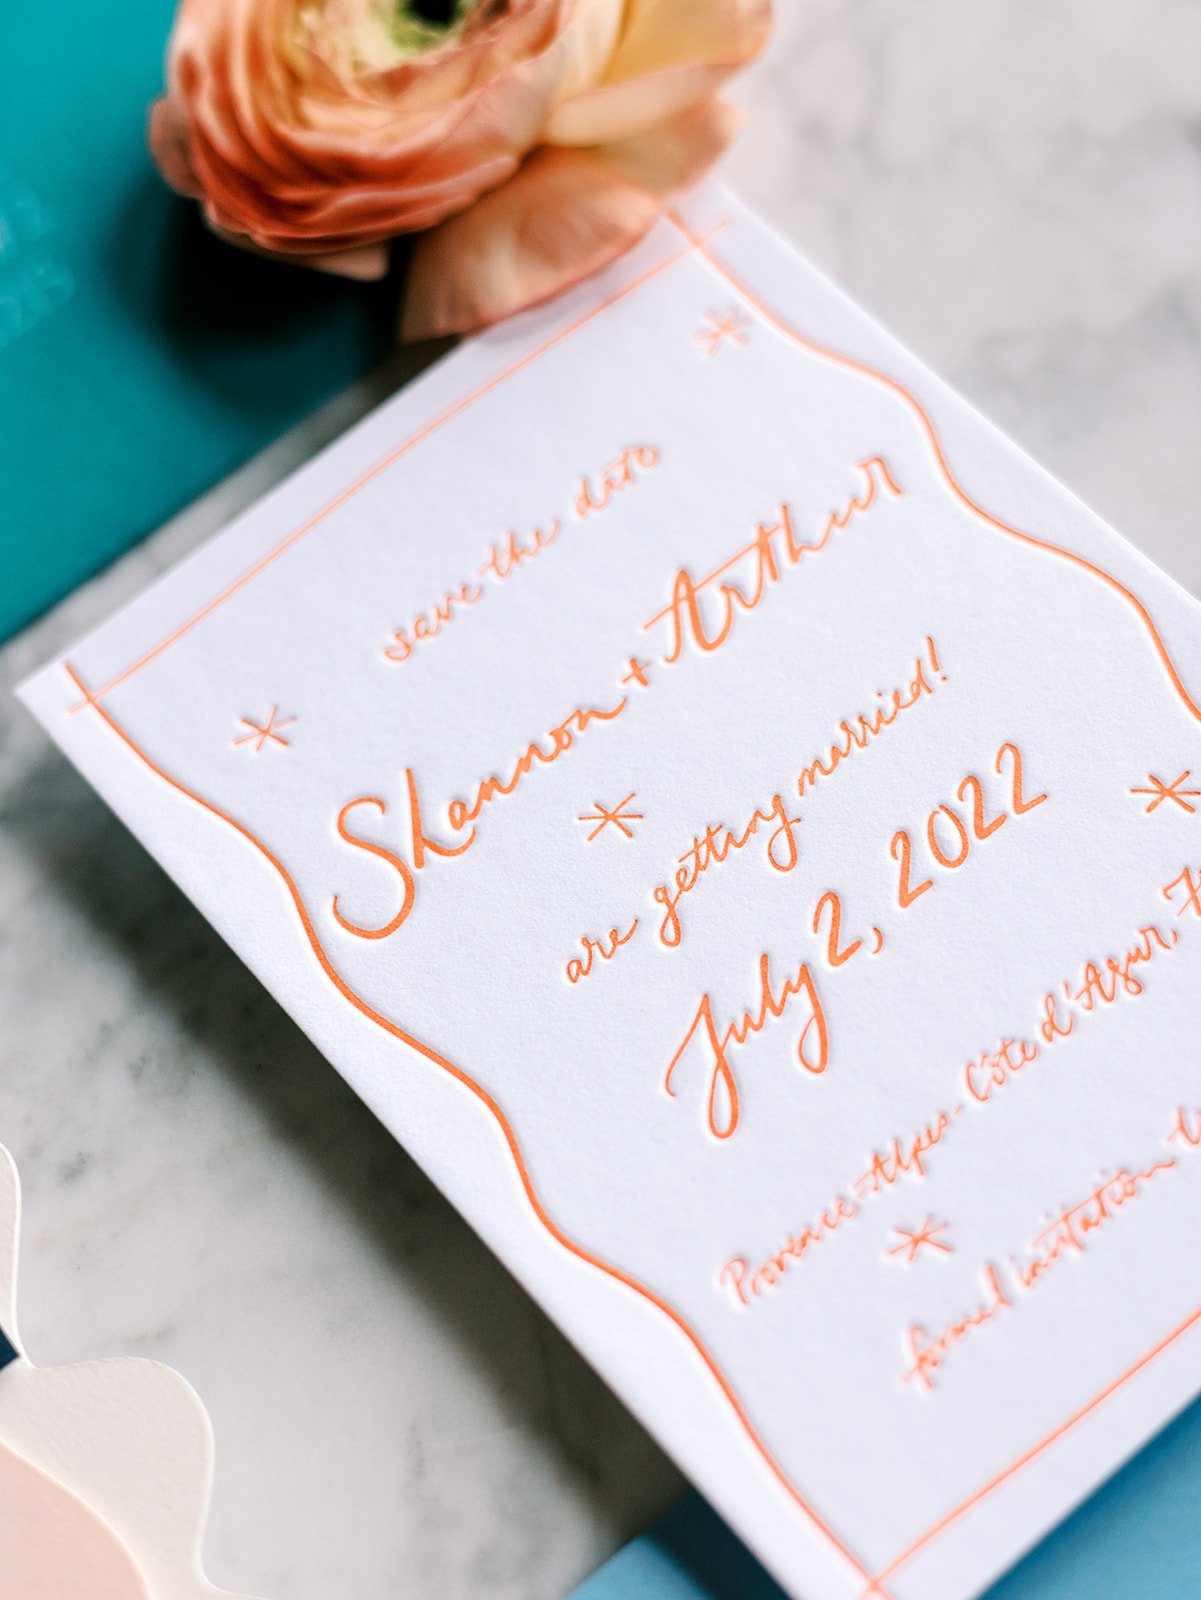 save the date
Shannon + Arthur
are getting married!
July 2, 2022
Provence-Alpes-Côte d'Azur,
formal invitation